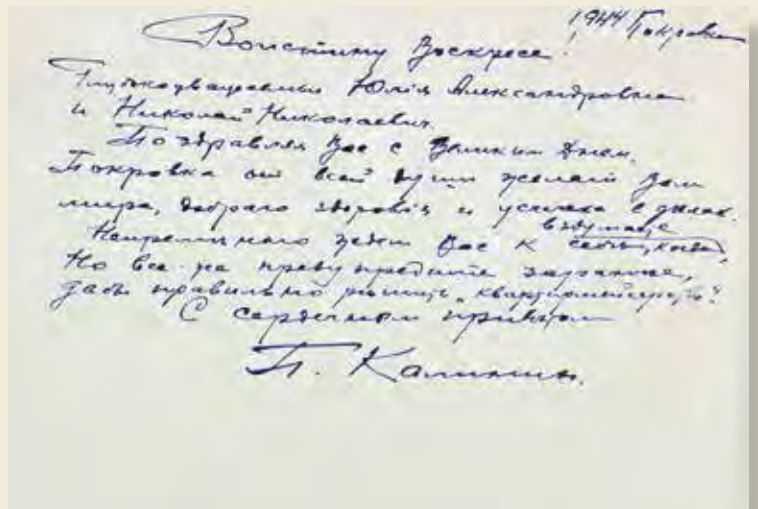 1944 Покровка
Воистину Воскресе!
Глубокоуважаемые Юлия Александровна
и Николай Николаевич.
Поздравляя Вас с Великим Днем,
Покровка от всей души желает Вам
мира, доброго здоровія и успеха в делах.
Непременно ждем Вас к себе, когда
вздумаете
Но все-же предупредите заранее,
дабы правильно решить „квартирмейстерство".
С сердечным приветом
П. Калинин.